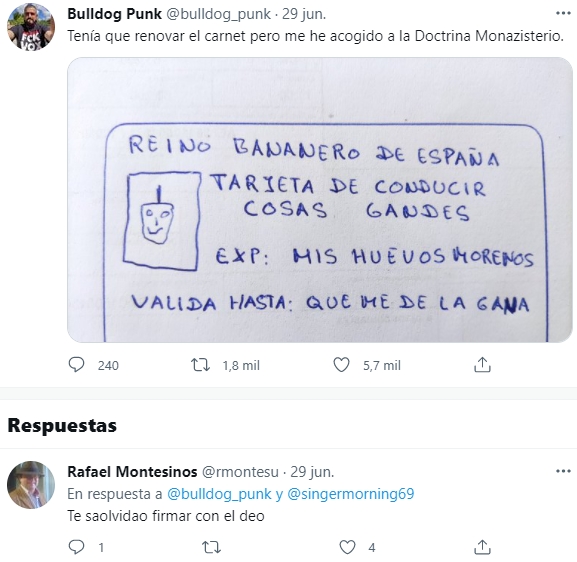 Bulldog Punk @bulldog_punk · 29 jun.
Tenía que renovar el carnet pero me he acogido a la Doctrina Monazisterio.
REINO BANANERO DE ESPAÑA
TARJETA DE CONDUCIR
COSAS GANDES
EXP: MIS HUEVOS MORENOS
VALIDA HASTA: QUE ME DE LA GANA
240 1,8 mil 5,7 mil
Respuestas
Rafael Montesinos @rmontesu · 29 jun.
En respuesta a @bulldog_punk y @singermorning69
Te saolvidao firmar con el deo
1 4